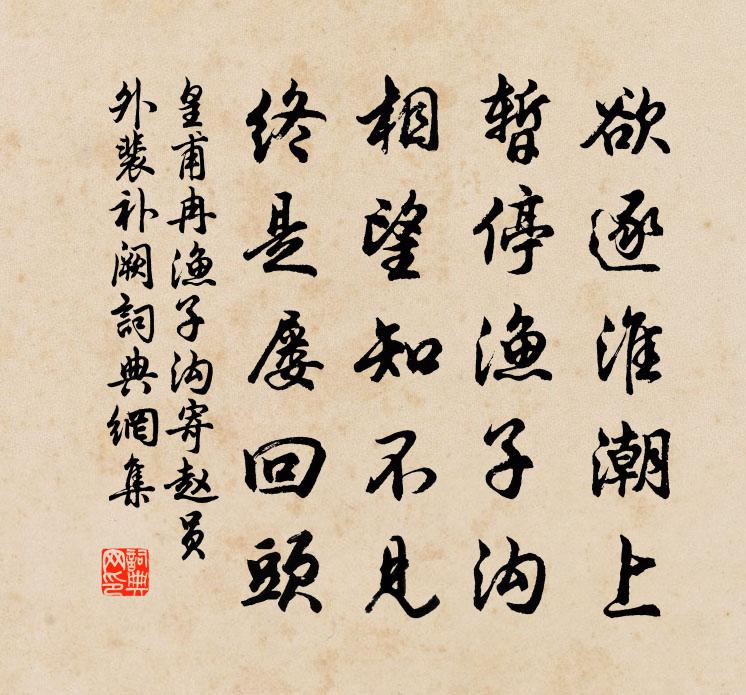 欲逐淮潮上
暂停渔子沟
相望知不见
终是屡回頭
皇甫冉渔子沟寄赵员
外裴补阙詞典網集
詞典
网印